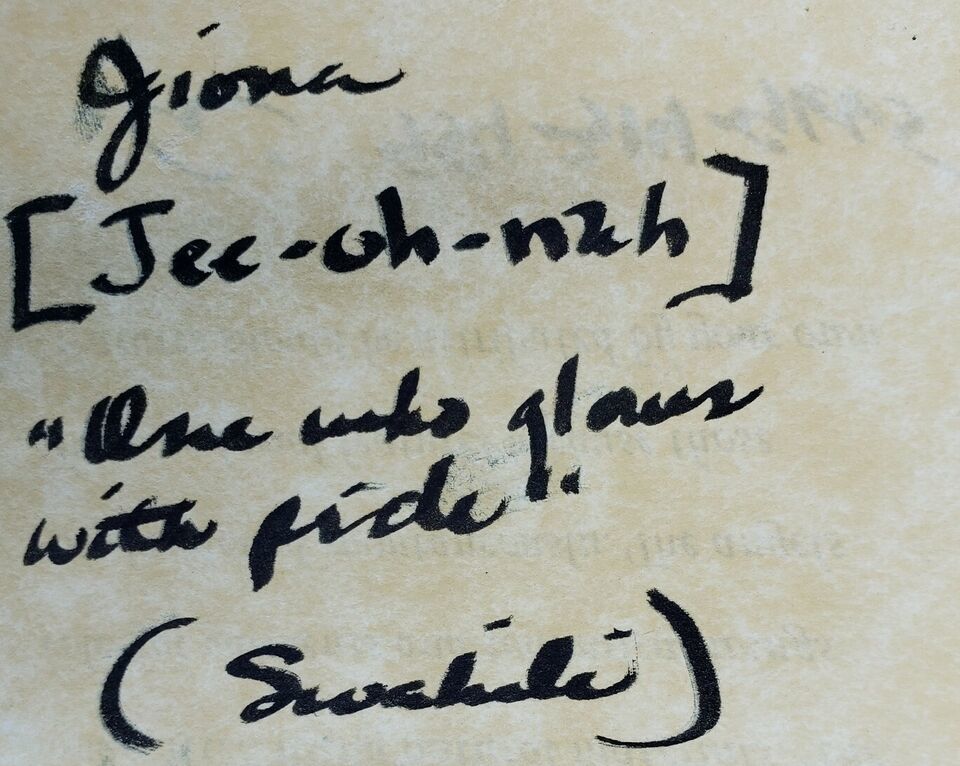 Jiona
[Jee-oh-nah]
"One who glows
with pride"
(Swahili)